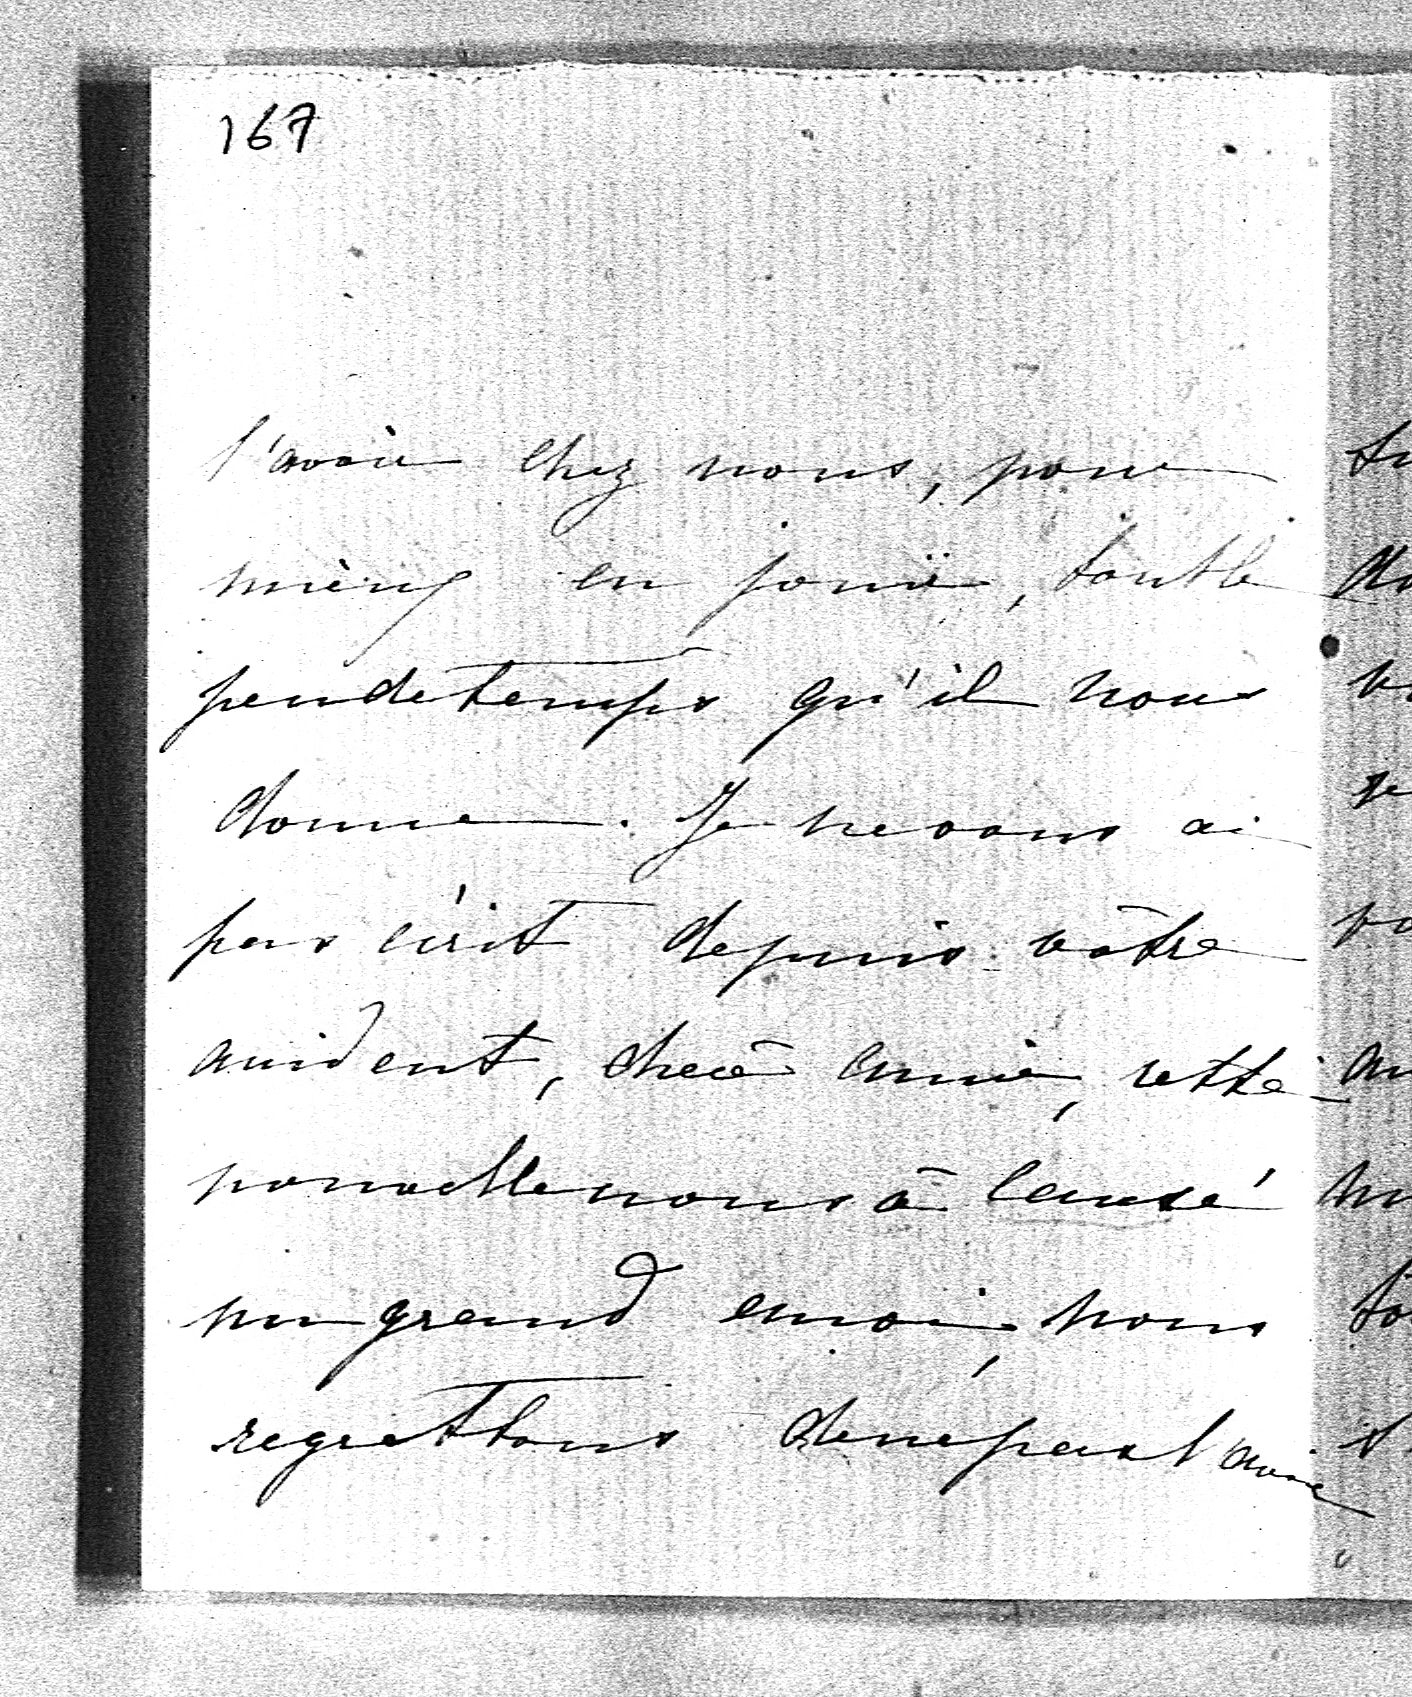 167
l'avoir chez nous, pour
mieux en jouir, tout le
peu de temps qu'il nous
donne. Je ne vous ai
pas écrit depuis vôtre
accident, chère amie, cette
nouvelle nous à causé
un grand emoi, nous
regrettons de ne pas l'avoir